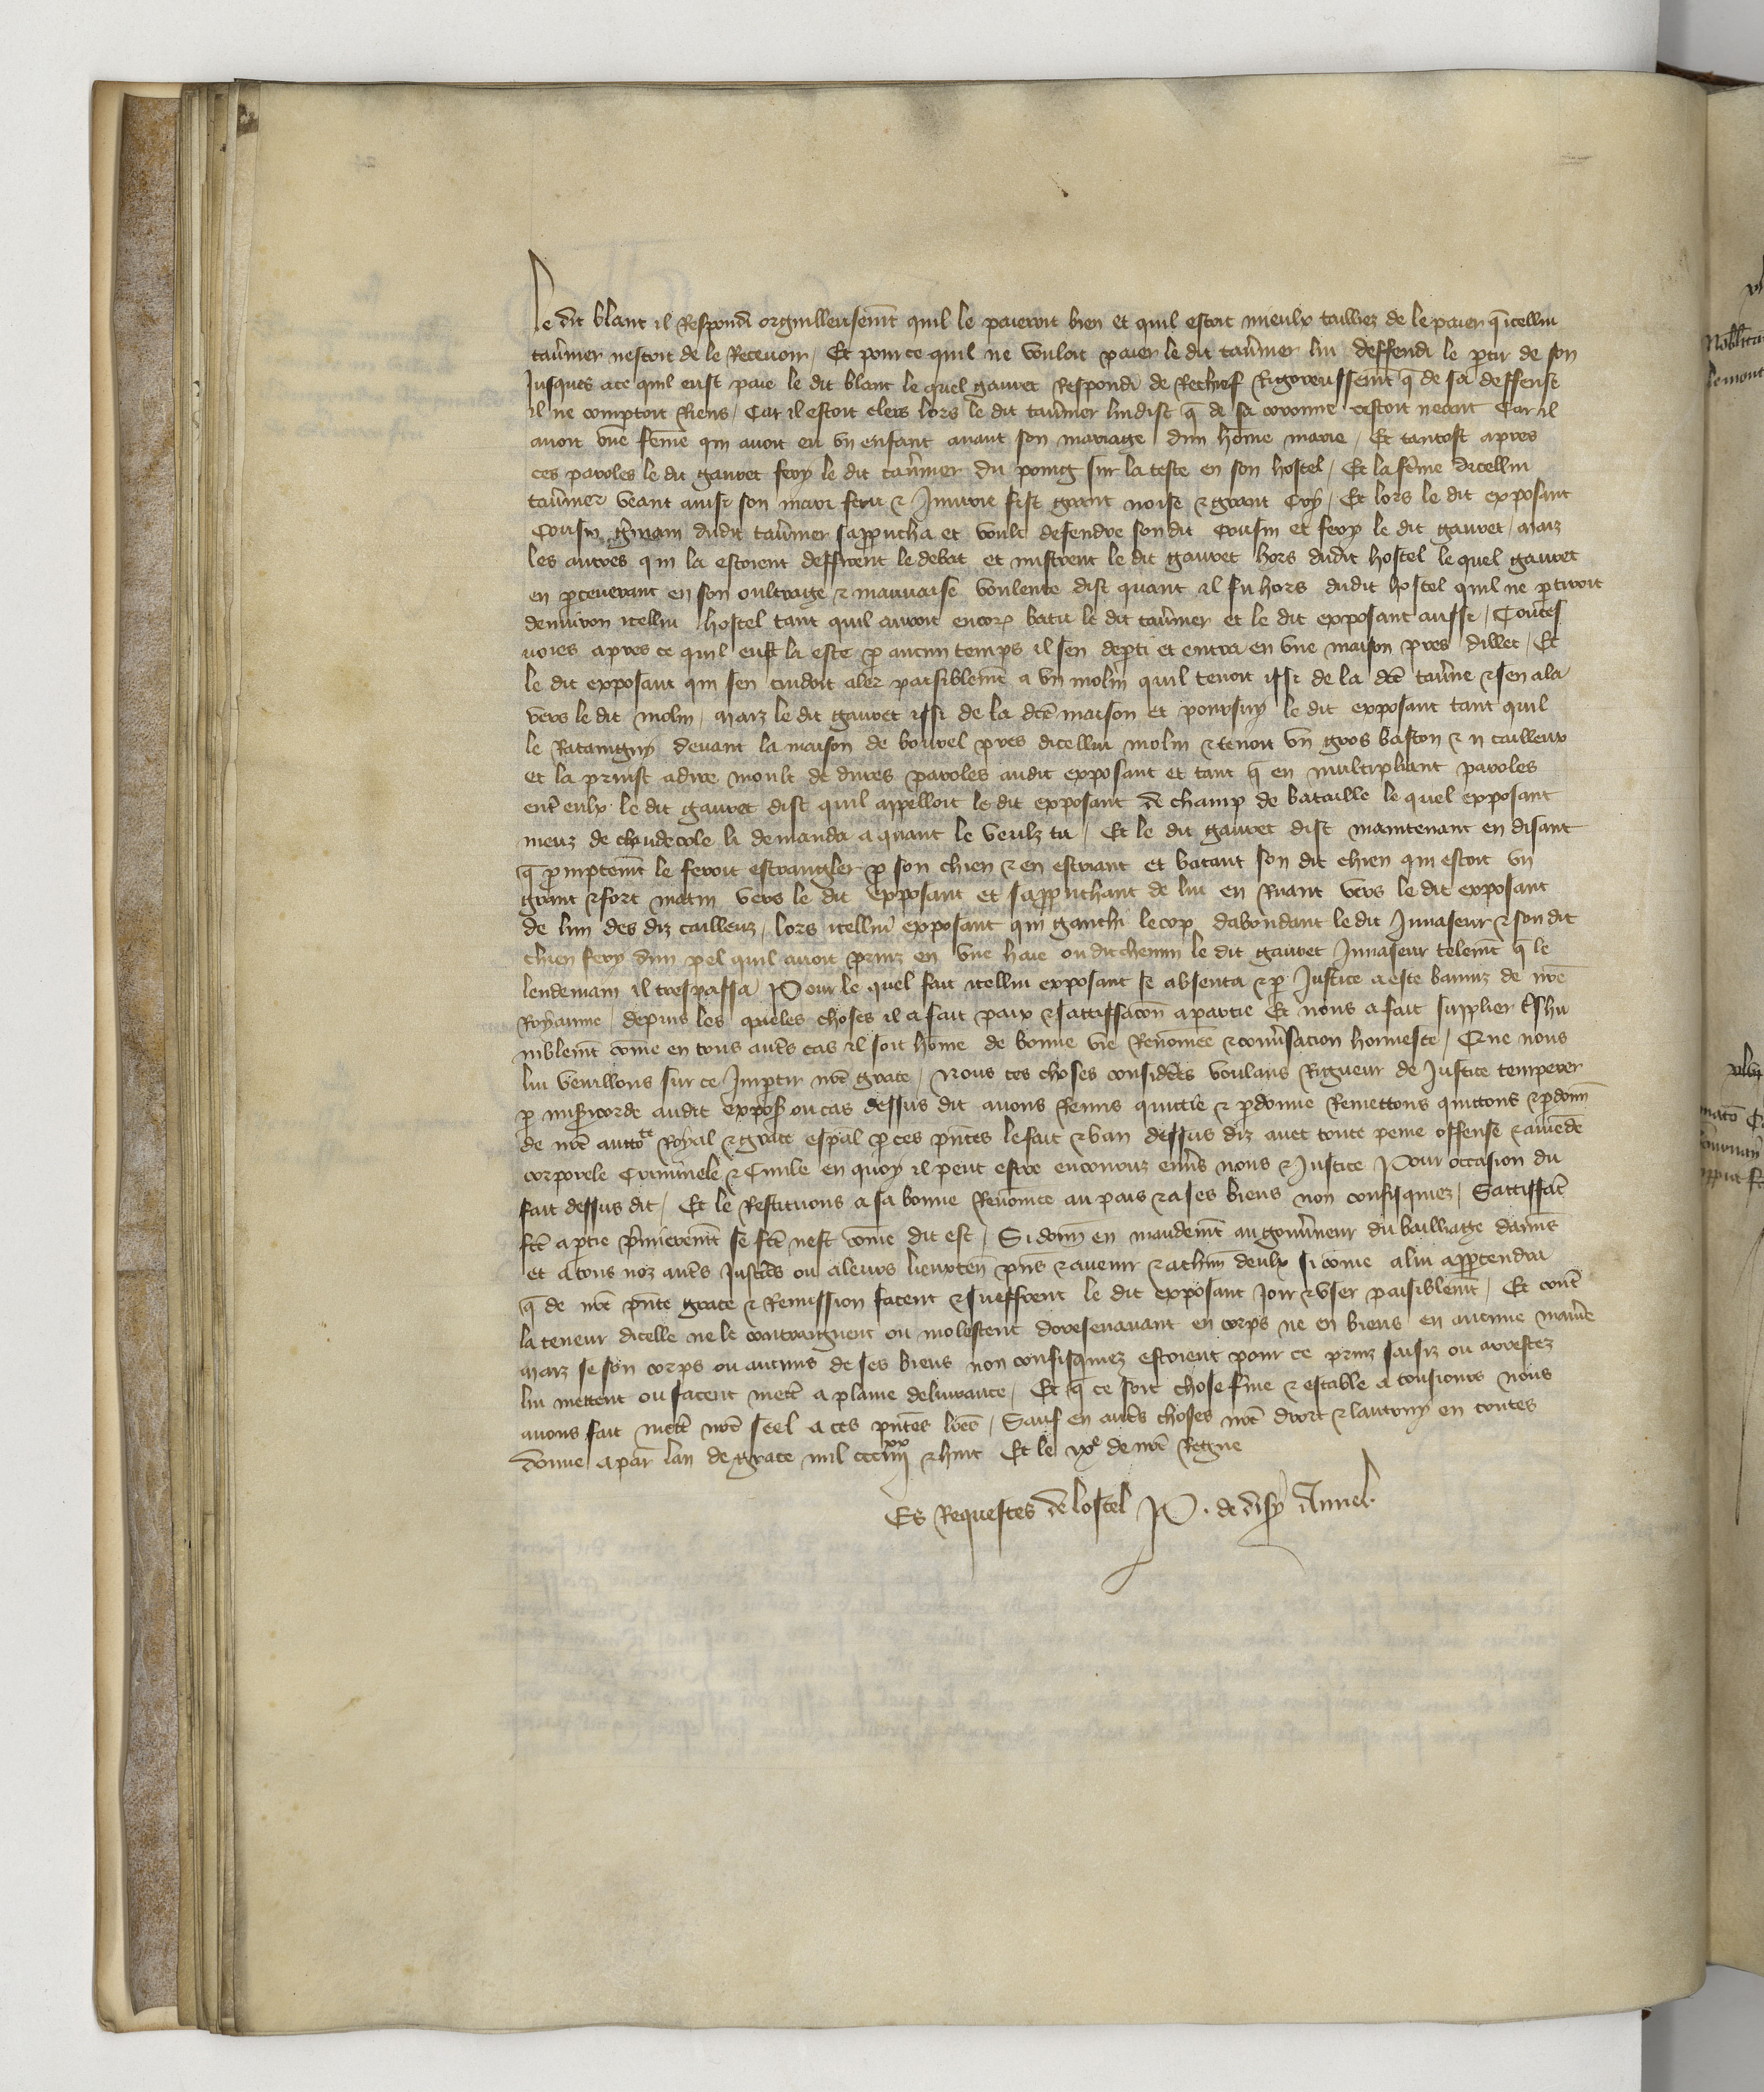 le dit blanc il Respondi orguilleusem̃t quil le paieroit bien et quil estoit mieulx tailliez de le paier q̃ icellui
tav̉nier nestoit de le Recevoir / Et pour ce quil ne vouloit paier le dit tav̉nier lui deffendi le ptir de son
Jusques ace quil eust paie le dit blanc le quel gauvet Respondi de Rechief Rigoreussem̃t q̃ de sa deffense
il ne comptoit Riens / Car il estoit clers lors le dit tav̉nier lui dist q̃ de sa coronne cestoit neant Car il
avoit vne fem̃e qui avoit eu vn enfant avant son mariage dun hom̃e marie / Et tantost apres
ces paroles le dit gauvet fery le dit tav̉nier du poing sur la teste en son hostel / Et la fem̃e dicellui
tav̉nier veant ainsi son mari feru & Iniurie fist grant noise & grant Cry / Et lors le dit exposant
Cousin g̉main dudit tav̉nier sapproucha et voult defendre son dit Cousin et fery le dit gauvet / maiz
les autres qui la estoient deffirent le debat et mistrent le dit gauvet hors dudit hostel le quel gauvet
en pseverant en son oultrage & mauvaise voulente dist quant il fu hors dudit hostel quil ne ptiroit
denviron icellui hostel tant quil auroit encor̃ batu le dit tav̉nier et le dit exposant aussi / Toutes
voies apres ce quil eust la este p aucun temps il sen depti et entra en vne maison pres dillec / Et
le dit exposant qui sen cuidoit aler paisiblem̃t a vn molin quil tenoit issi de la dcẽ tav̉ne & sen ala
vers le dit molin / maiz le dit gauvet issi de la dcẽ maison et poursuy le dit exposant tant quil
le Rataingny devant la maison de bourel pres dicellui molin & tenoit vn gros baston & ii cailleux
et la prinst adire moult de dures paroles audit exposant et tant q̃ en multipliant paroles
ent̃ eulx le dit gauvet dist quil appelloit le dit exposant de champ de bataille le quel exposant
meuz de chaudecole li demanda a quant le veulz tu / Et le dit gauvet dist maintenant en disant
q̃ pmptem̃t le feroit estrangler p son chien & en escriant et batant son dit chien qui estoit vn
grant & fort matin vers le dit exposant et sapprouchant de lui en Ruant vers le dit exposant
de lun des diz cailleuz / lors icellui exposant qui ganchi le cop dabondant le dit Invaseur & son dit
chien fery dun pel quil avoit prinz en vne haie ou dit chemin le dit gauvet Invaseur telem̃t q̃ le
lendemain il trespassa Pour le quel fait icellui exposant se absenta & p Justice a este banniz de nr̃e
Royaume / depuis les queles choses il a fait paix & satisfacõn a partie Et nous a fait supplier t̉shu
mblem̃t com̃e en tous aut̃s cas il soit hom̃e de bonne vie Renom̃ee & conv̉sacion honneste / Que nous
lui veuillons sur ce Imptir nr̃e grace / Nous ces choses considẽes voulans Rigueur de Justice temperer
p miscorde audit expos̃ ou cas dessus dit avons Remis quictie & pdonne Remettons quittons & pdonñ
de nr̃e auctote Royal & grace esp̃al p ces pñtes le fait & ban dessus diz avec toute peine offense & amẽde
corporele Criminele & Civile en quoy il peut estre encoruz env̉s nous & Justice Pour occasion du
fait dessus dit / Et le Restituons a sa bonne Renom̃ee au pais & a ses biens non confisquiez / Satisfacõ
fcẽ a ptie p̉mierem̃t se fcẽ nest com̃e dit est / Si donñ en mandem̃t au gouv̉neur du bailliage damiẽs
et a tous noz aut̃s Justiciẽs ou a leurs lieuxteñ pñs & avenir & a chũn deulx si com̃e a lui apptendra
q̃ de nr̃e pñte grace & Remission facent & sueffrent le dit exposant Joir & vser paisiblem̃t / Et cont̃
la teneur dicelle ne le contraignent ou molestent doresenavant en corps ne en biens en aucune manie
maiz se son corps ou aucuns de ses biens non confisquiez estoient pour ce prinz saisiz ou arrestez
lui mettent ou facent mett̃ a plaine delivrance / Et q̃ ce soit chose fẽme & estable a tousiours nous
avons fait mett̃ nr̃e seel a ces pñtes lr̃es / Sauf en aut̃s choses nr̃e droit & lautruy en toutes
donne a paris lan de grace mil ccc iiiixx & huit Et le ixe de nr̃e Regne
Es Requestes de lostel P. de disy